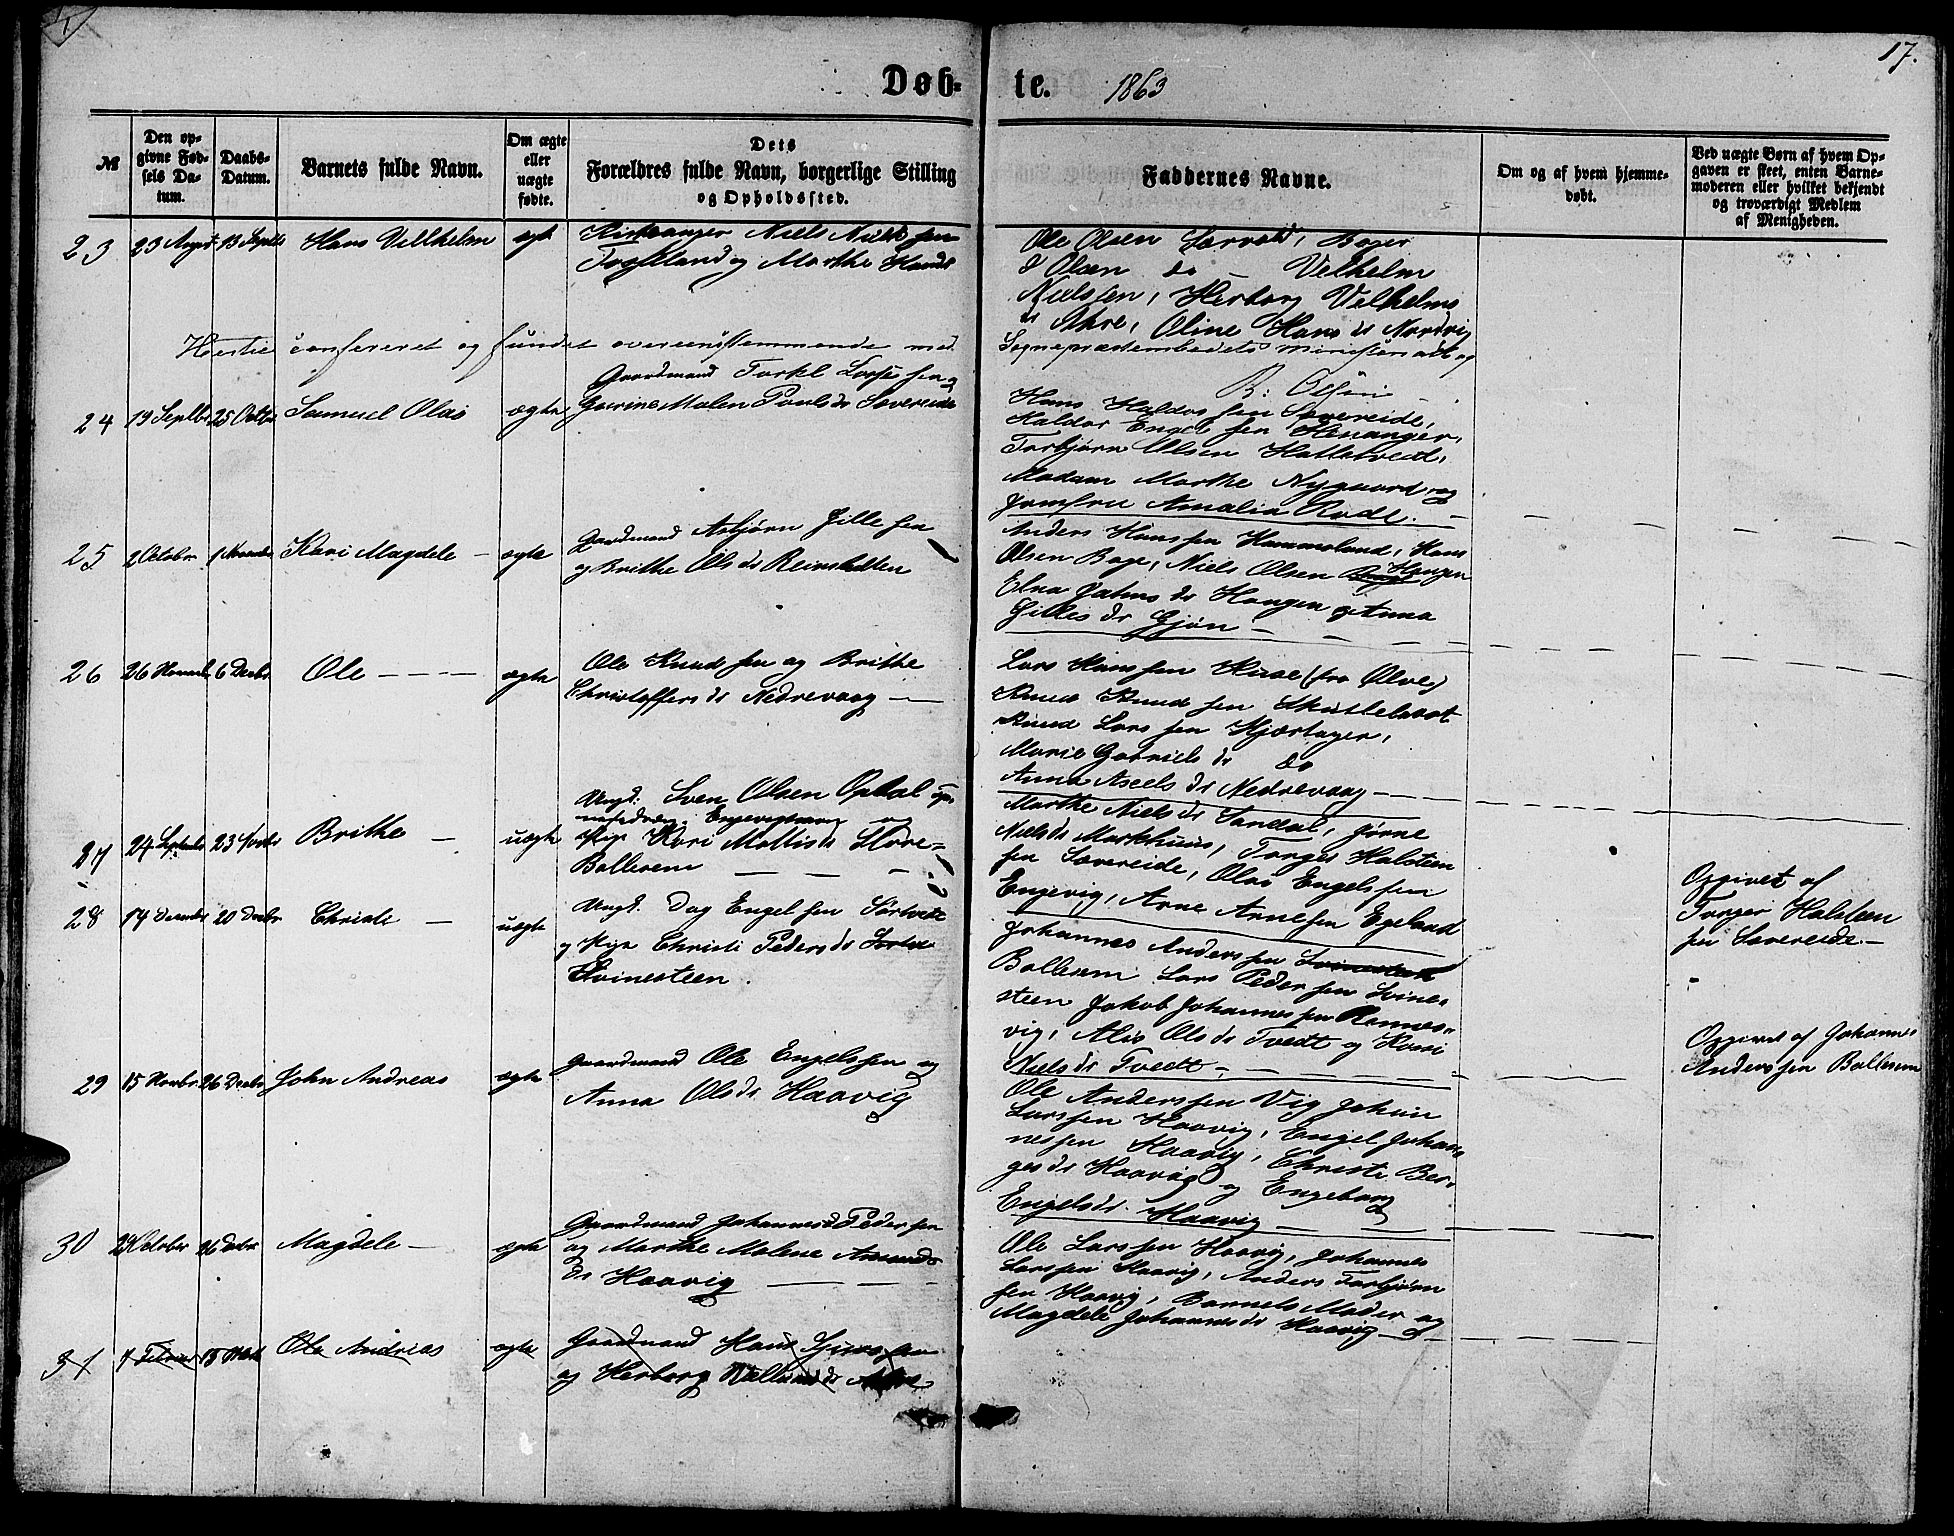 17.
Døb-te. 1863
№
Den op-
givne Fød-
sels Da-
tum.
Daabs-
Datum.
Barnets fulde Navn.
Om ægte
eller
uægte
fødte.
Dets
Forældres fulde Navn, borgerlige Stilling
og Opholdssted.
Faddernes Navne.
Om og af hvem hjemme-
døbt.
Ved uægte Børn af hvem Op-
gaven er skeet, enten Barne-
moderen eller hvilket bekjendt
og troværdigt Medlem
af Menigheden.
23 23 August 13 Septbr Hans Villhelm ægt Niels Niels sen
og Marthe Hansd
Ole Olsen
Olsen do — Velhelm
Nielssen, Herborg Velhelms
dr Ahre, Oline Hans dr Nordvig
Hertil confereret og fundet overeenstemmende med
Sognepræstembedets Ministerialbog
B. Olsen
24 19 Septbr 25 Octbr Samuel Olai ægte Gaardmand Torkl sen og
Malen Pouls dr Sævereide
Hans Haldor sen Sævereide,
Haldor Engel sen Henanger,
Torbjørn Olsen Hatletvedt,
Madam Marthe Nygaard og
Jomfru Amalia Rode. —
25 2 October 1 Novembr Kari Magdele — ægte Gaardmand Asbjørn Gille sen
og Brithe Ols dr
Anders Hans sen Hammeland, Hans
Olsen Boge, Niels Olsen Haugen
Elna dr Haugen og Anna
Gilles dr Gjøn —
26 26 Novembr 6 Decbr Ole — — — ægte Ole Knud sen og Brithe
Christoffers dr Nedrevaag —
Lars Hans sen Huse (fra Ølve)
Knud Knud sen
Knud Lars sen Hjørtager,
Marie Gabriels dr do
Anna Axels dr Nedrevaag —
27 24 Septembr 23 Novbr Brithe — uægte Ungk: Sven Olsen Opdal
og
Pige Kari Mattis dr Store-
Bollesem — — —
Marthe Niels dr Sandal, Jørne
Niels dr Markhuus, Torger Halsteen
sen Sævereide, Olai Engels sen
Engevig, Arne Arnesen Egeland
Opgivet af
Torger Halsteen
sen Sævereide —
28 14 Decembr 20 Decbr Christi — uægte Ungk. Dag Engel sen Sørtvedt
og Pige Christi Peders dr
Svinesteen.
Johannes Anders sen
Bollesem Lars Peder sen Svine-
steen Jakob Johannes sen Rammes-
vig, Alis Ols dr Tvedt og Kari
Niels dr Tvedt —
Opgivet af Johannes
Anders sen Bollesem
29 15 Novbr 26 Decbr John Andreas ægte Gaardmand Ole Engels sen og
Anna Ols dr Haavig
Ole Anders sen Vig Johan
Lars sen Haavig, Engel Johan-
nessen Haavig, Christi Ber-
ges dr Haavig og Engeborg
Engels dr. Haavig —
30 October 26 Decbr Magdele — ægte Gaardmand Johannes Peder sen
og Marthe Malene
dr Haavig —
Ole Lars sen Haavig, Johannes
Lars sen Haavig, Anders Torbjørn
sen Haavig, Barnets Moder og
Magdele Johannes dr Haavig —
31 7 Februar 15 Ole Andreas ægte Gaardmand Hans sen
og Herborg dr